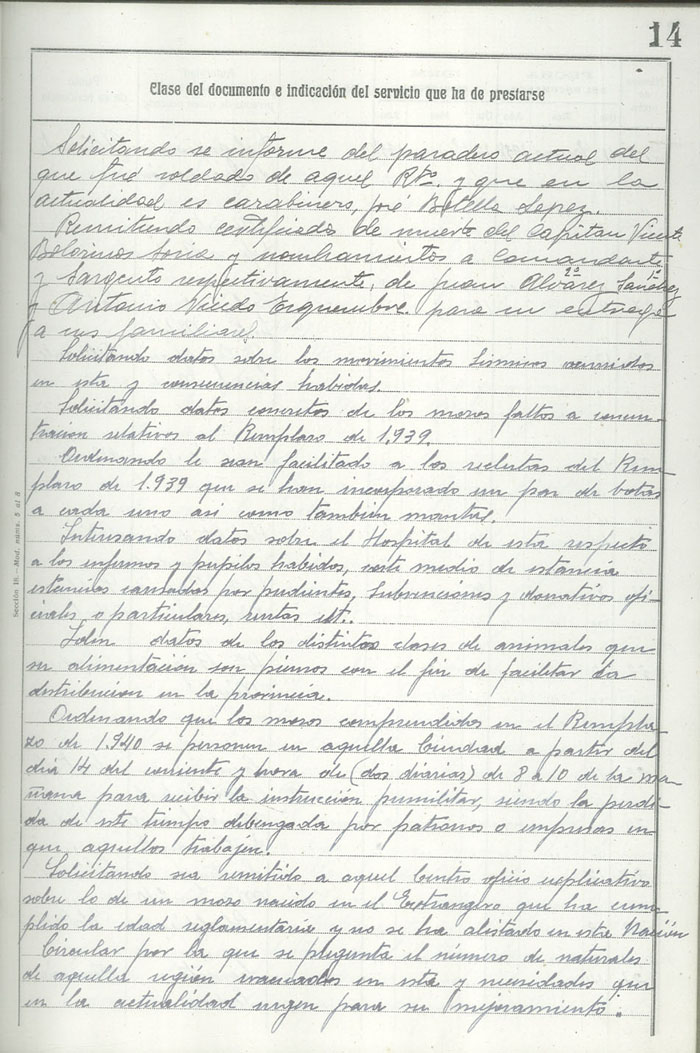 14
Clase del documento e indicación del servicio que ha de prestarse
Solicitando se informe del paradero actual del
que fué soldado de aquel Rto. y que en la
actualidad es carabinero, José Botella Lopez.
Remitiendo certificado de muerte del Capitan Vicente
Bolorinos Soria y nombramientos a Comandante
y Sargento respectivamente, de Juan Alvárez Sanchez
y Antonio Vicedo Esquembre para su entrega
a sus familiares
Solicitando datos sobre los movimientos sismicos ocurridos
en esta y consecuencias habidas.
Solicitando datos concretos de los mozos faltos a concen-
tracion relativos al Remplazo de 1.939.
Ordenando le sean facilitado a los reclutas del Rem-
plazo de 1.939 que se han incorporado un par de botas
a cada uno asi como tambien mantas.
Interesando datos sobre el Hospital de esta respecto
a los enfermos y pupilos habidos, coste medio de estancia
estancias causadas por pudientes, Subvenciones y donativos ofi-
ciales o particulares, rentas ect..
Idem datos de los distintos clases de animales que
su alimentación son piensos con el fin de facilitar la
distribucion en la provincia.
Ordenando que los mozos comprendidos en el Rempla
zo de 1.940 se personen en aquella Ciudad a partir del
dia 14 del corriente y hora de (dos diarias) de 8 a 10 de la ma-
ñana para recibir la instrucción premilitar, siendo la perdi-
da de este tiempo debengada por patronos o empresas en
que aquellos trabajen.
Solicitando sea remitido a aquel Centro oficio explicativo
sobre lo de un mozo nacido en el Extrangero que ha cum-
plido la edad reglamentaria y no se ha alistado en esta Nación
Circular por la que se pregunta el número de naturales
de aquella región evacuados en esta y necesidades que
en la actualidad urgen para su mejoramiento.
Sección 18.—Mod. núms. 5 al 8